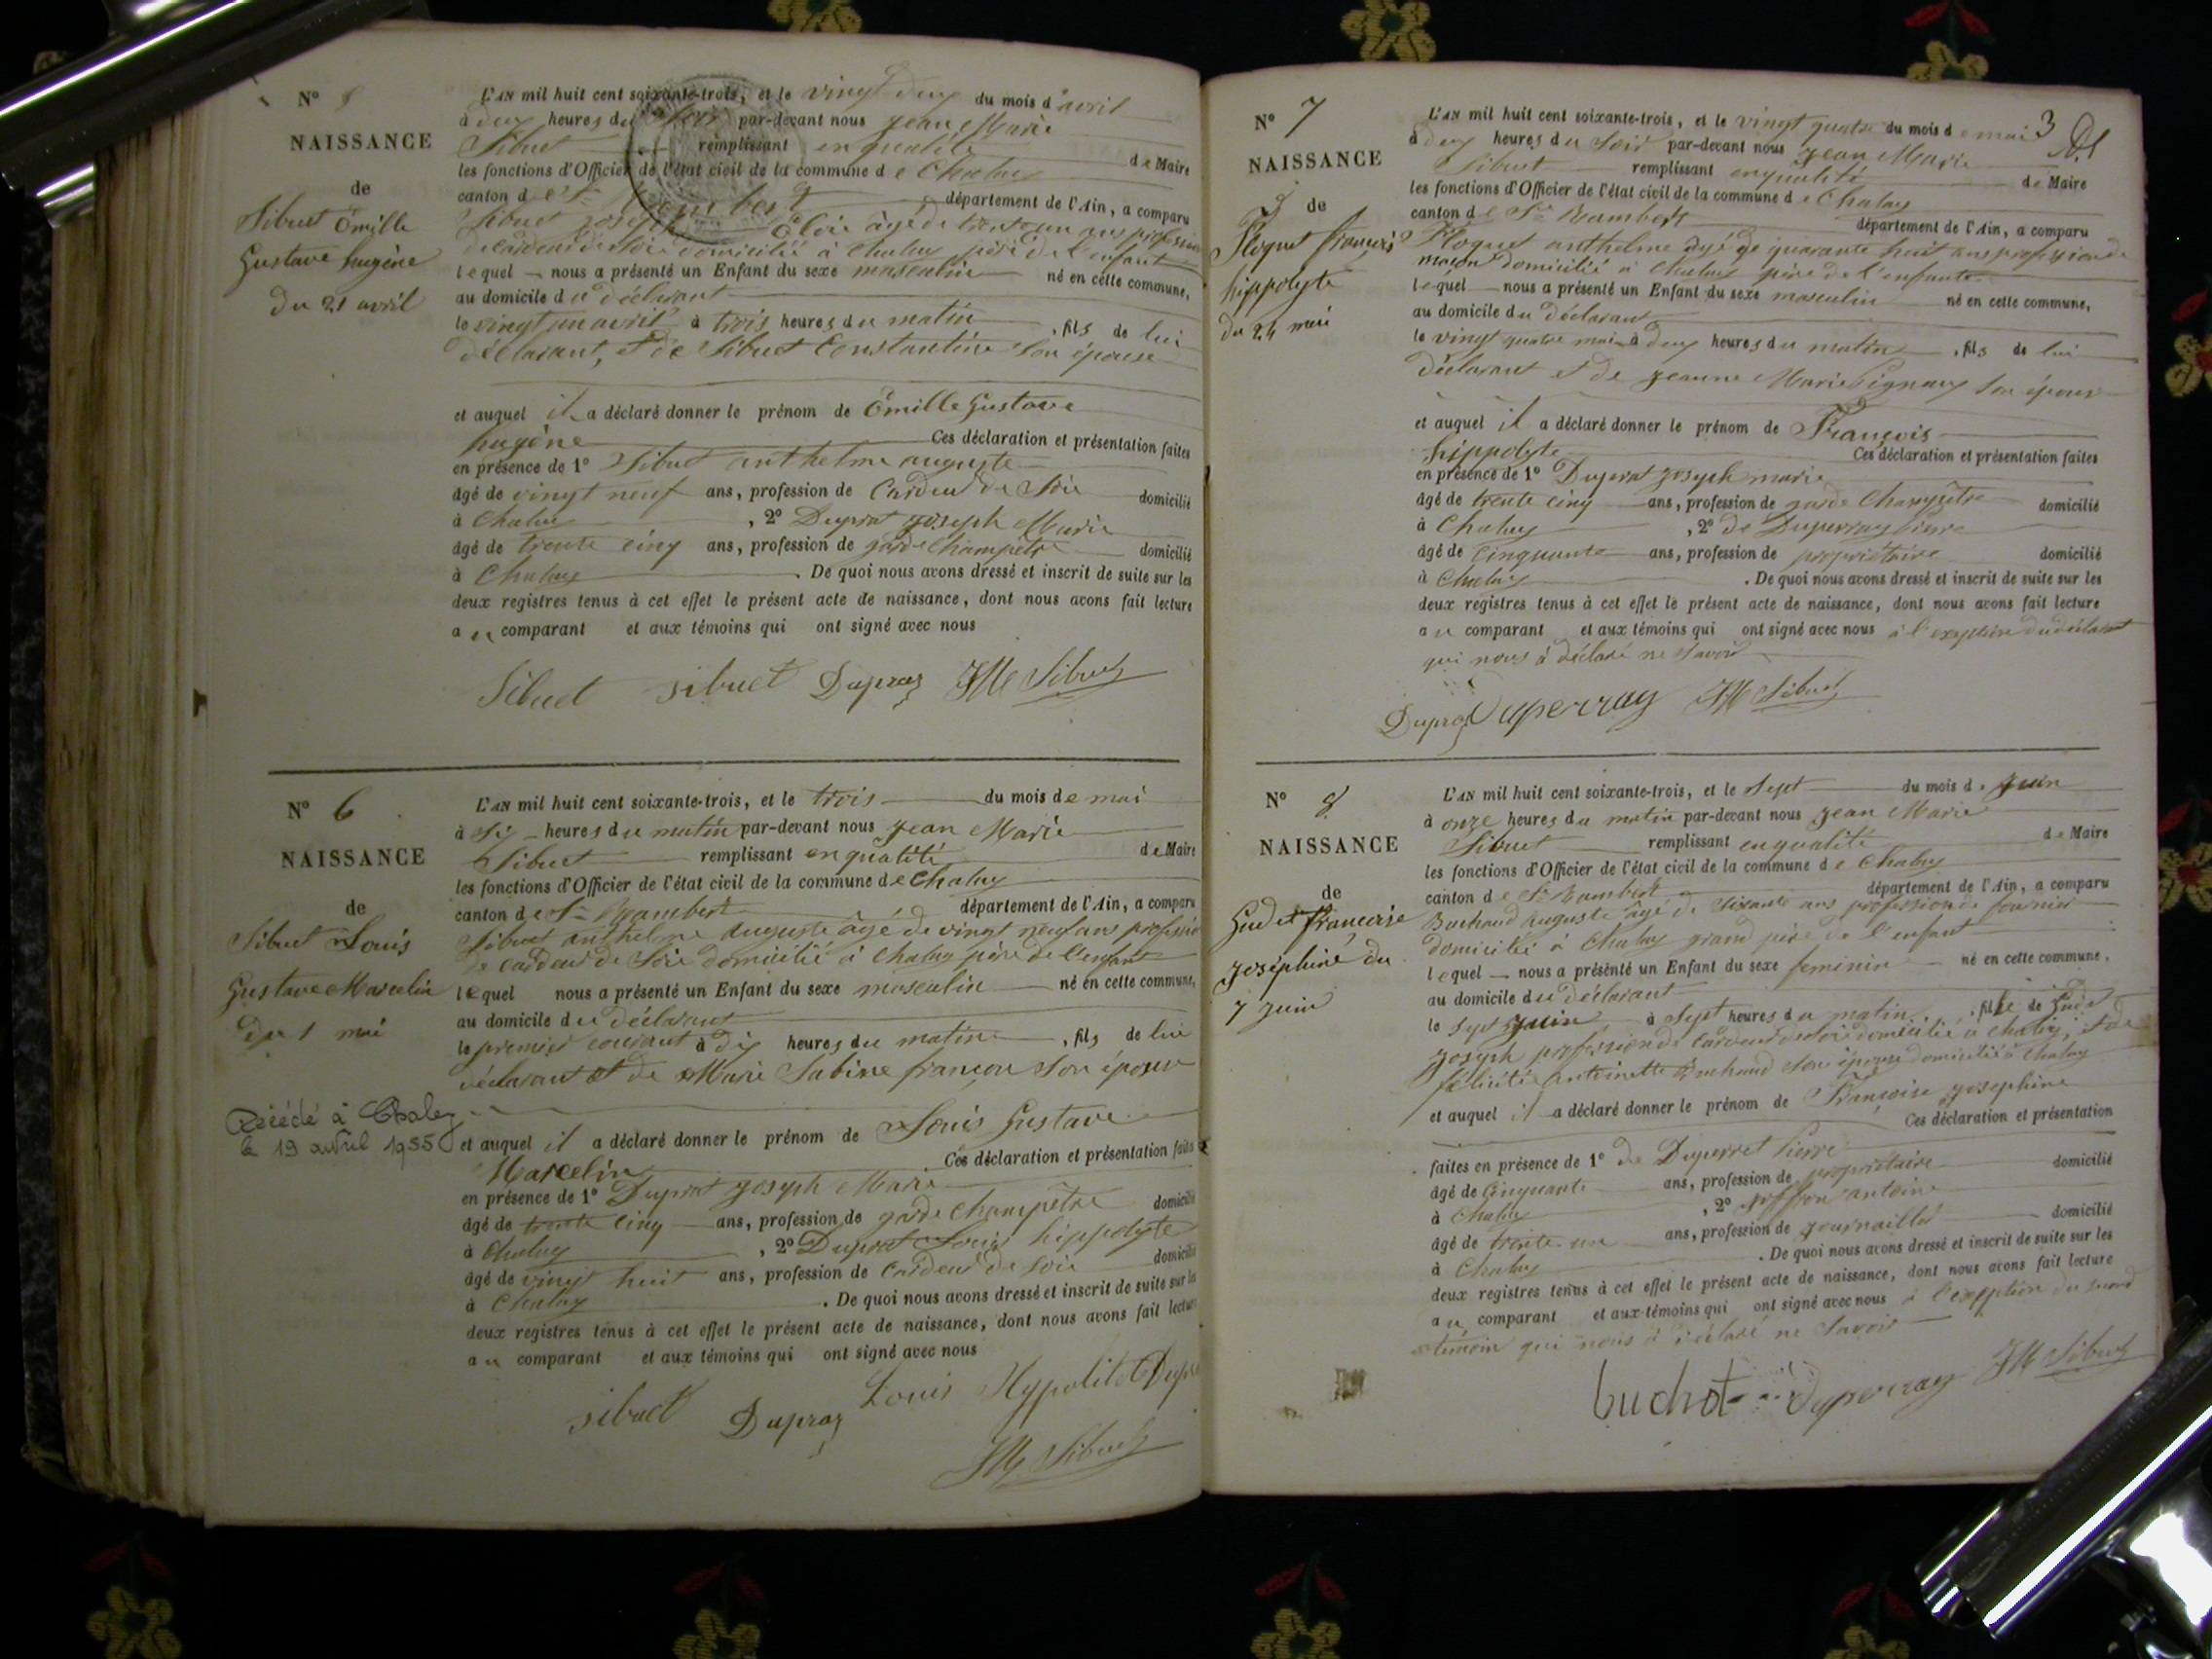 N° 5
NAISSANCE
de
Sibuet Émille
Gustave hugène
du 21 avril
L'AN mil huit cent soixante-trois, et le vingt deux du mois d'avril
à deux heures du Soir par-devant nous Jean Marie
Sibuet remplissant en qualité de Maire
les fonctions d'Officier de l'état civil de la commune de Chaley
canton de St Rambert département de l'Ain, a comparu
Sibuet Joseph Éloie âgé de trente un ans profession
de cardeur de Soie domicilié à Chaley père de l'enfant
lequel nous a présenté un Enfant du sexe masculin né en cette commune,
au domicile du déclarant
le vingt un avril à trois heures du matin, fils de lui
déclarant, et de Sibuet Constantine Son épouse
et auquel il a déclaré donner le prénom de Émille Gustave
hugène Ces déclaration et présentation faites
en présence de 1° Sibuet anthelme auguste
âgé de vingt neuf ans, profession de Cardeur de Soie domicilié
à Chaley, 2° Duprat Joseph Marie
âgé de trente cinq ans, profession de garde Champêtre domicilié
à Chaley. De quoi nous avons dressé et inscrit de suite sur les
deux registres tenus à cet effet le présent acte de naissance, dont nous avons fait lecture
au comparant et aux témoins qui ont signé avec nous
Sibuet sibuet Dupraz JM Sibuet
N° 6
NAISSANCE
de
Sibuet Louis
Gustave Marcelin
du 1 mai
Décédé à Chaley
le 19 avril 1955
L'AN mil huit cent soixante-trois, et le trois du mois de mai
à Six heures du matin par-devant nous Jean Marie
Sibuet remplissant en qualité de Maire
les fonctions d'Officier de l'état civil de la commune de Chaley
canton de St Rambert département de l'Ain, a comparu
Sibuet anthelme auguste âgé de vingt neuf ans profession
de cardeur de Soie domicilié à Chaley père de l'enfant
lequel nous a présenté un Enfant du sexe masculin né en cette commune,
au domicile du déclarant
le premier courant à dix heures du matin, fils de lui
déclarant et de Marie Sabine françon Son épouse
et auquel il a déclaré donner le prénom de Louis Gustave
Marcelin Ces déclaration et présentation faites
en présence de 1° Duprat Joseph Marie
âgé de trente cinq ans, profession de garde Champêtre domicilié
à Chaley, 2° Duprat Louis hippolyte
âgé de vingt huit ans, profession de Cardeur de Soie domicilié
à Chaley. De quoi nous avons dressé et inscrit de suite sur les
deux registres tenus à cet effet le présent acte de naissance, dont nous avons fait lecture
au comparant et aux témoins qui ont signé avec nous
sibuet Dupraz Louis Hypolite Dupra
JM Sibuet
3
N° 7
NAISSANCE
de
Ploquet françois
hippolyte
du 24 mai
L'AN mil huit cent soixante-trois, et le vingt quatre du mois de mai
à deux heures du Soir par-devant nous Jean Marie
Sibuet remplissant en qualité de Maire
les fonctions d'Officier de l'état civil de la commune de Chaley
canton de St Rambert département de l'Ain, a comparu
Ploquet anthelme âgé de quarante huit ans profession de
maçon domicilié à Chaley père de l'enfant
lequel nous a présenté un Enfant du sexe masculin né en cette commune,
au domicile du déclarant
le vingt quatre mai à deux heures du matin, fils de lui
déclarant et de Jeanne Marie Son épouse
et auquel il a déclaré donner le prénom de François
hippolyte Ces déclaration et présentation faites
en présence de 1° Duprat Joseph marie
âgé de trente cinq ans, profession de garde Champêtre domicilié
à Chaley, 2° de Duperray pierre
âgé de Cinquante ans, profession de propriétaire domicilié
à Chaley. De quoi nous avons dressé et inscrit de suite sur les
deux registres tenus à cet effet le présent acte de naissance, dont nous avons fait lecture
au comparant et aux témoins qui ont signé avec nous à l'exception du déclarant
qui nous à déclaré ne Savoir
Dupraz Duperray JM Sibuet
N° 8
NAISSANCE
de
francoise
Joséphine du
7 Juin
L'AN mil huit cent soixante-trois, et le Sept du mois de Juin
à onze heures du matin par-devant nous Jean Marie
Sibuet remplissant en qualité de Maire
les fonctions d'Officier de l'état civil de la commune de Chaley
canton de St Rambert département de l'Ain, a comparu
auguste âgé de Soixante ans profession de
domicilié à Chaley grand père de l'enfant
lequel nous a présenté un Enfant du sexe feminin né en cette commune,
au domicile du déclarant
le Sept Juin à Sept heures du matin, fille de
Joseph profession de cardeur de soie domicilié à Chaley, et de
félicité antoinette Son épouse domicilié à Chaley
et auquel il a déclaré donner le prénom de Francoise Josephine
Ces déclaration et présentation
faites en présence de 1° de Duperret Pierre
âgé de Cinquante ans, profession de propriétaire domicilié
à Chaley, 2° antoine
âgé de trente un ans, profession de Journaillé domicilié
à Chaley. De quoi nous avons dressé et inscrit de suite sur les
deux registres tenus à cet effet le présent acte de naissance, dont nous avons fait lecture
au comparant et aux témoins qui ont signé avec nous à l'exception du second
témoin qui nous à déclaré ne Savoir
buchot Duperray JM Sibuet